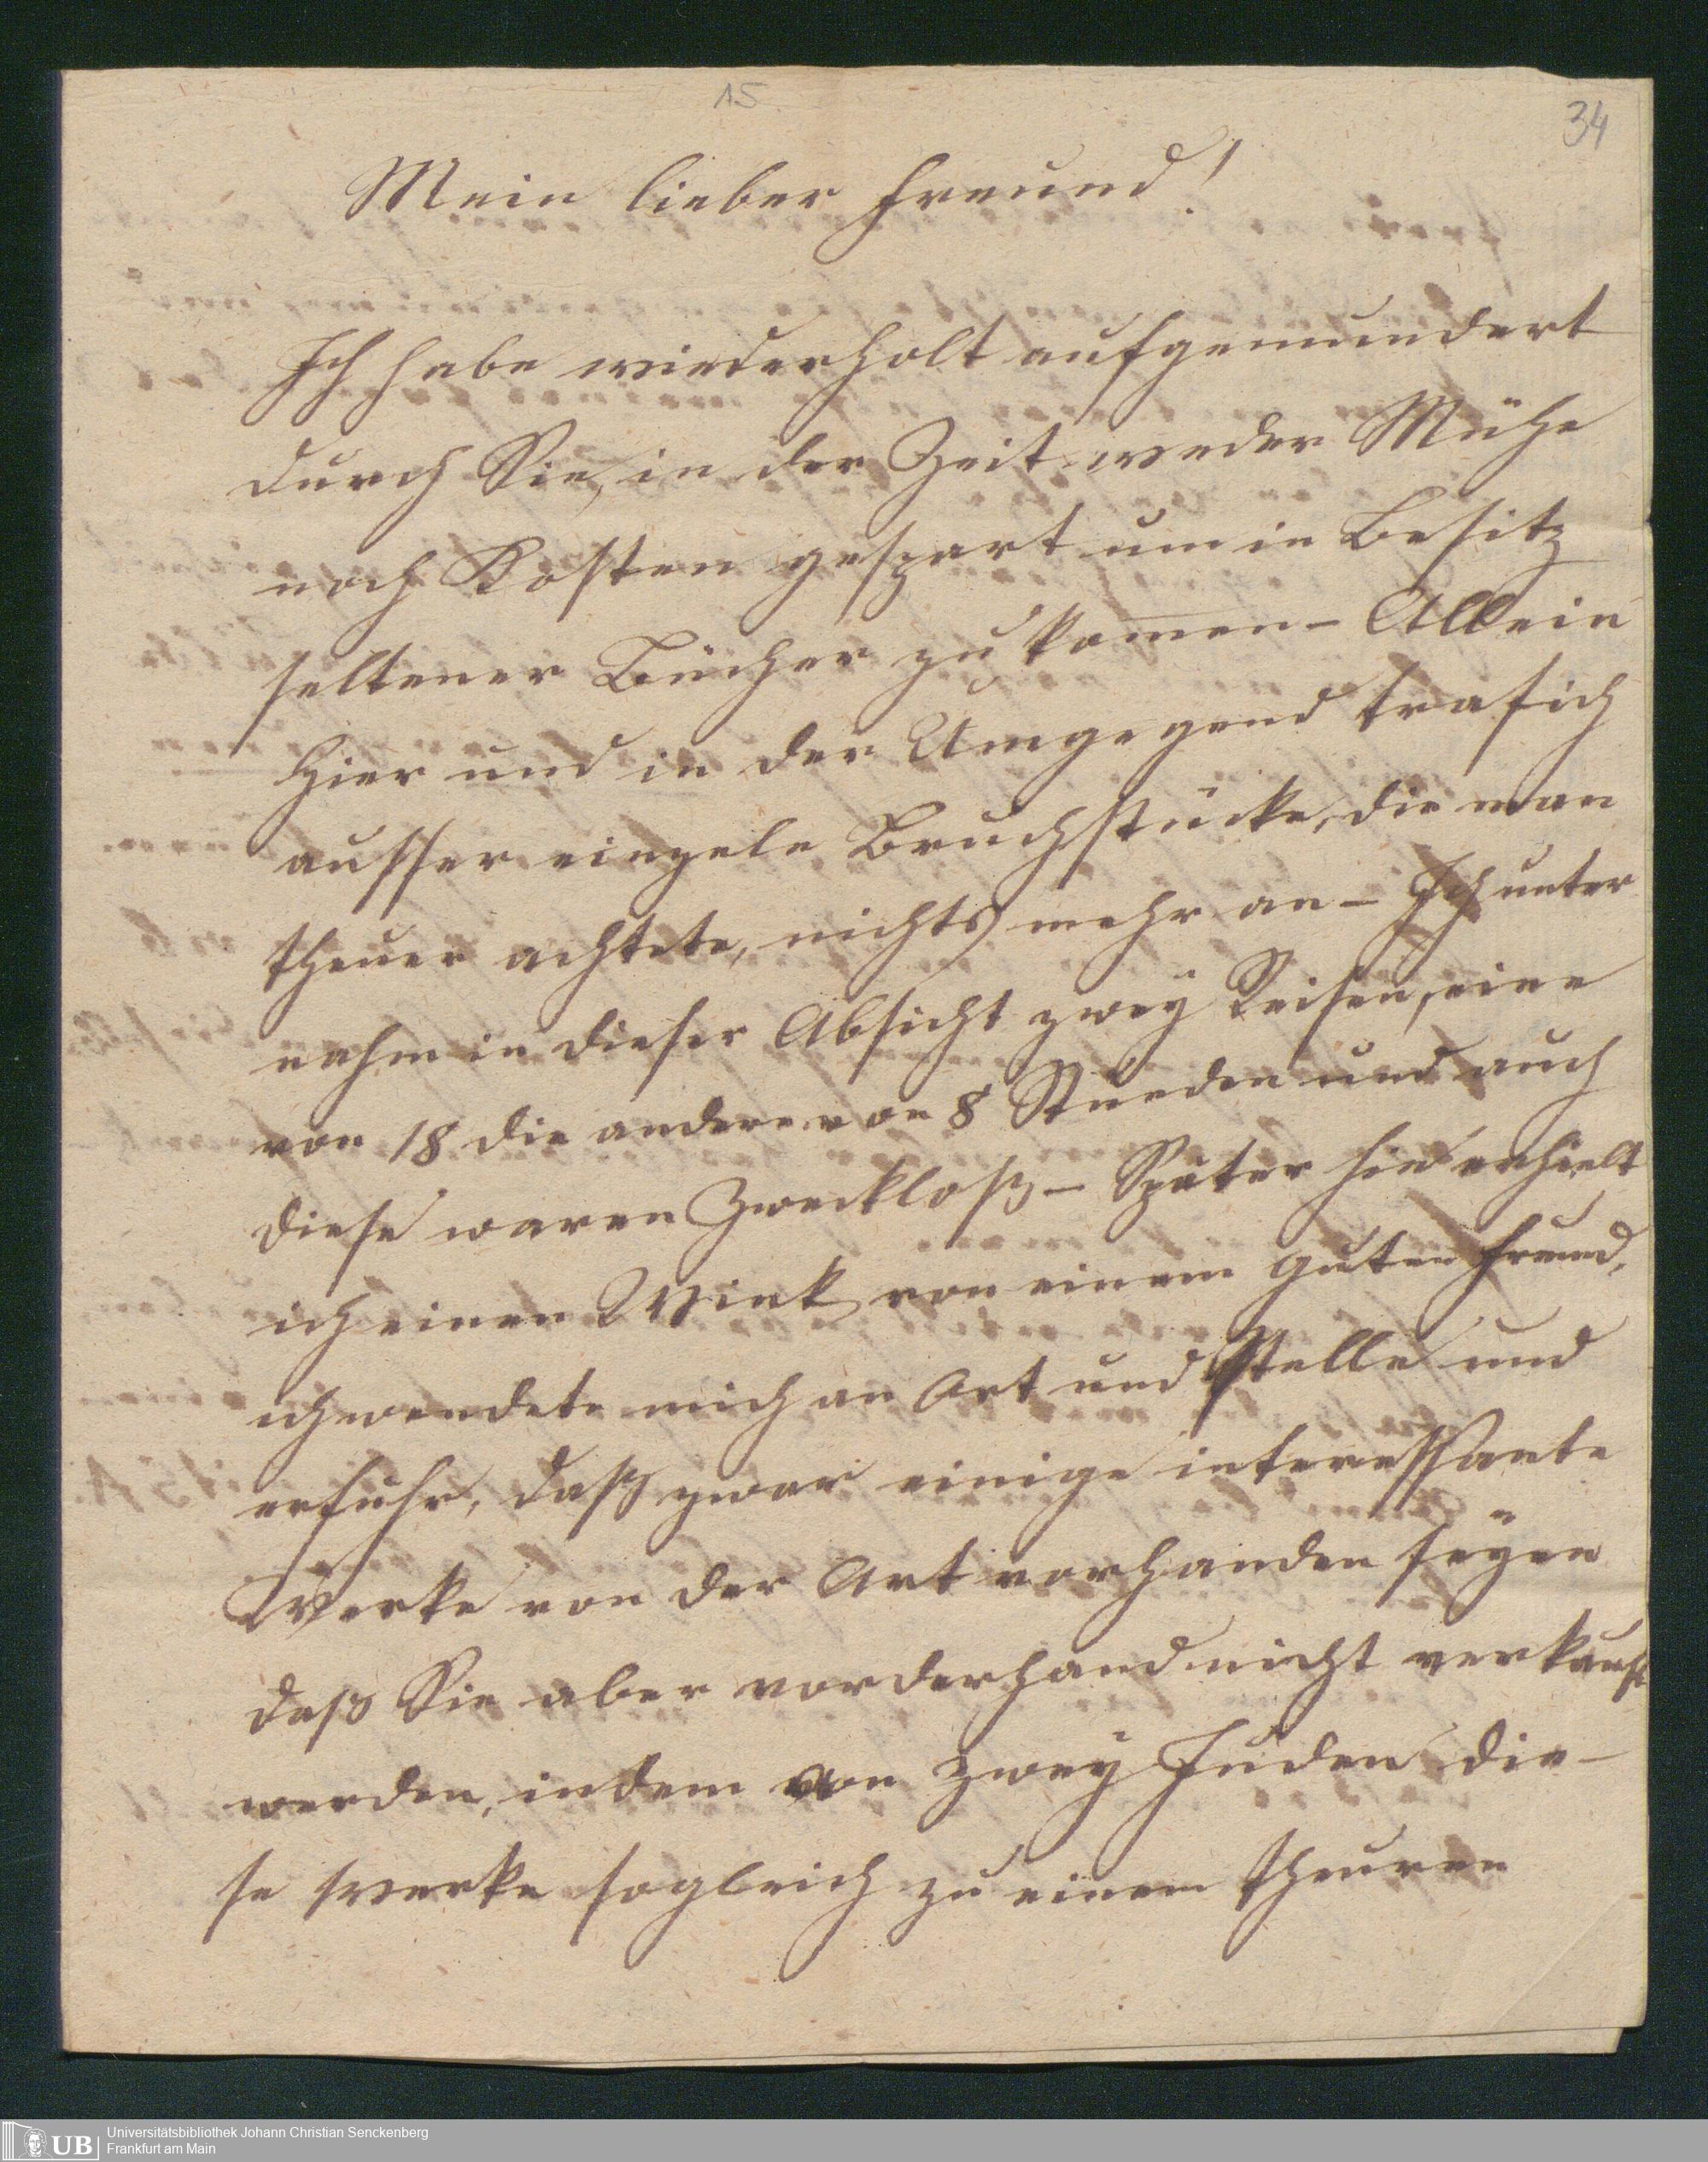 15
34
Mein lieber Freund!
Ich habe wiederholt aufgemundert
durch Sie, in der Zeit weder Mühe
noch Kosten gespart um in Besitz
seltener Bücher zu komen – Allein
hier und in der Umgegend traf ich
ausser einzele Bruchstücke, die man
theuer achtete, nichts mehr an – Ich unter
nahm in dieser Absicht zweÿ Reisen, eine
von 18 die andere von 8 Stunden und auch
diese waren Zwecklos – Später hin erhielt
ich einen Wink von einem guten Freund,
ich wendete mich an Ort und Stelle und
erfuhr, daß zwar einige interessante
Werke von der Art vorhanden seÿen
daß Sie aber vorderhand nicht verkauft
werden, indem von zweÿ Juden die–
se Werke sogleich zu einem theuren
UB
Universitätsbibliothek Johann Christian Senckenberg
Frankfurt am Main